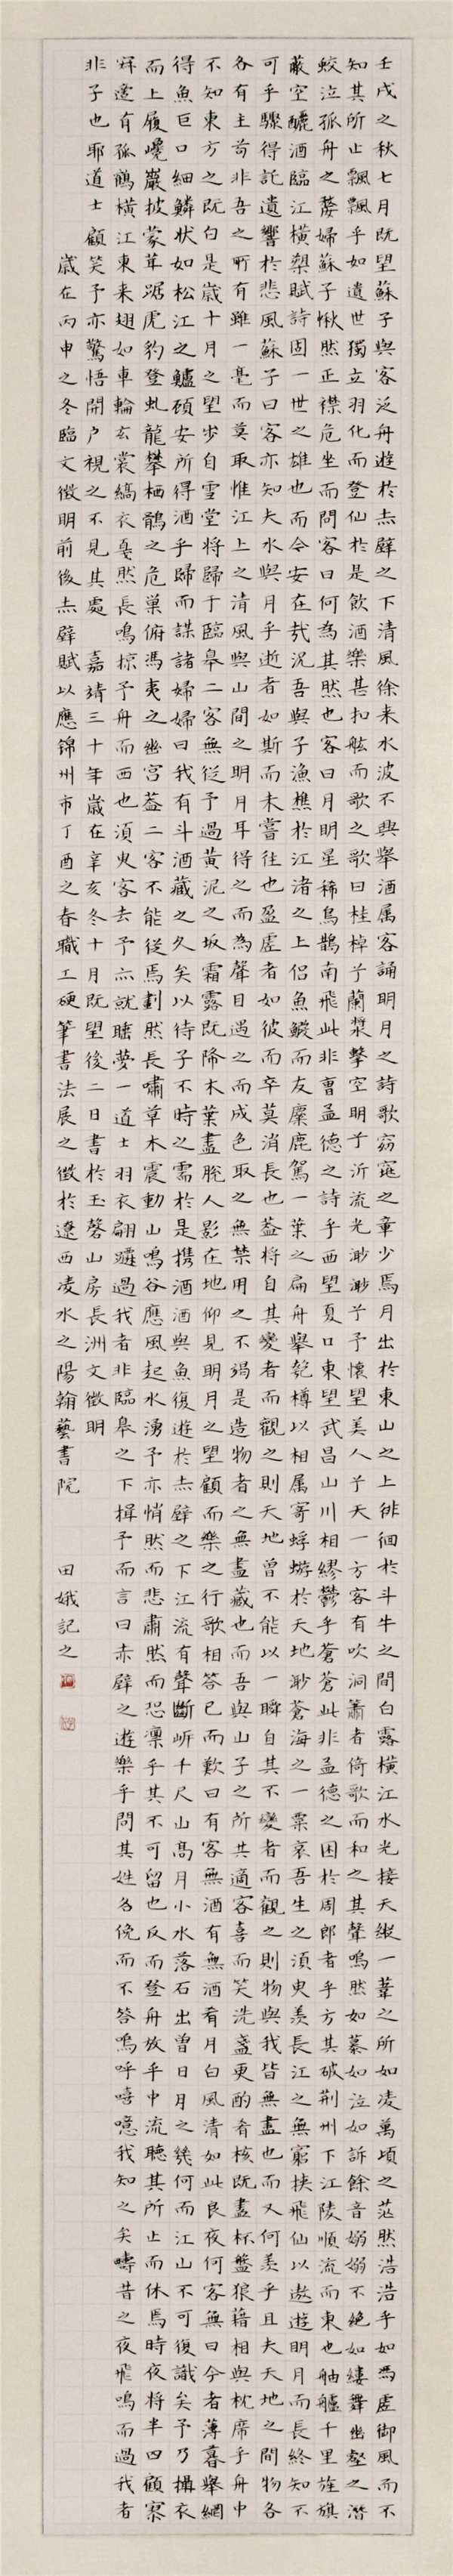 壬戌之秋七月既望蘇子與客泛舟遊於赤壁之下清風徐来水波不興舉酒属客誦明月之詩歌窈窕之章少焉月出於東山之上徘徊於斗牛之間白露横江水光接天縱一葦之所如凌萬頃之茫然浩浩乎如馮虛御風而不
知其所止飄飄乎如遺世獨立羽化而登仙於是飲酒樂甚扣舷而歌之歌曰桂棹兮蘭槳擊空明兮泝流光渺渺兮予懷望美人兮天一方客有吹洞簫者倚歌而和之其聲嗚然如慕如泣如訴餘音嫋嫋不絶如縷舞幽壑之潛
蛟泣孤舟之嫠婦蘇子愀然正襟危坐而問客曰何為其然也客曰月明星稀烏鵲南飛此非曹孟德之詩乎西望夏口東望武昌山川相繆鬱乎蒼蒼此非孟德之困於周郎者乎方其破荆州下江陵順流而東也舳艫千里旌旗
蔽空釃酒臨江横槊賦詩固一世之雄也而今安在哉況吾與子漁樵於江渚之上侶魚鰕而友麋鹿駕一葉之扁舟舉匏樽以相属寄蜉蝣於天地渺蒼海之一粟哀吾生之須臾羨長江之無窮挾飛仙以遨遊明月而長終知不
可乎驟得託遺響於悲風蘇子曰客亦知夫水與月乎逝者如斯而未嘗往也盈虛者如彼而卒莫消長也蓋將自其變者而觀之則天地曾不能以一瞬自其不變者而觀之則物與我皆無盡也而又何羨乎且夫天地之間物各
各有主苟非吾之所有雖一毫而莫取惟江上之清風與山間之明月耳得之而為聲目遇之而成色取之無禁用之不竭是造物者之無盡藏也而吾與山子之所共適客喜而笑洗盞更酌肴核既盡杯盤狼藉相與枕席乎舟中
不知東方之既白是歲十月之望步自雪堂將歸于臨皋二客無從予過黄泥之坂霜露既降木葉盡脫人影在地仰見明月之望顧而樂之行歌相答已而歎曰有客無酒有無酒肴月白風清如此良夜何客無曰今者薄暮舉網
得魚巨口細鱗狀如松江之鱸碩安所得酒乎歸而謀諸婦婦曰我有斗酒藏之久矣以待子不時之需於是携酒酒與魚復遊於赤壁之下江流有聲斷岸千尺山高月小水落石出曾日月之幾何而江山不可復識矣予乃攝衣
而上履巉巖披蒙茸踞虎豹登虬龍攀栖鶻之危巢俯馮夷之幽宮蓋二客不能從焉劃然長嘯草木震動山鳴谷應風起水湧予亦悄然而悲肅然而恐凛乎其不可留也反而登舟放乎中流聽其所止而休焉時夜將半四顧寂
寥適有孤鶴横江東来翅如車輪玄裳縞衣戛然長鳴掠予舟而西也須臾客去予亦就睡夢一道士羽衣翩躚過我者非臨皋之下揖予而言曰赤壁之遊樂乎問其姓名俛而不答嗚呼噫嘻我知之矣疇昔之夜飛鳴而過我者
非子也耶道士顧笑予亦驚悟開户視之不見其處 嘉靖三十年歲在辛亥冬十月既望後二日書於玉磬山房長洲文徵明
歲在丙申之冬臨文徵明前後赤壁賦以應錦州市丁酉之春職工硬筆書法展之徵於遼西凌水之陽翰藝書院 田娥記之